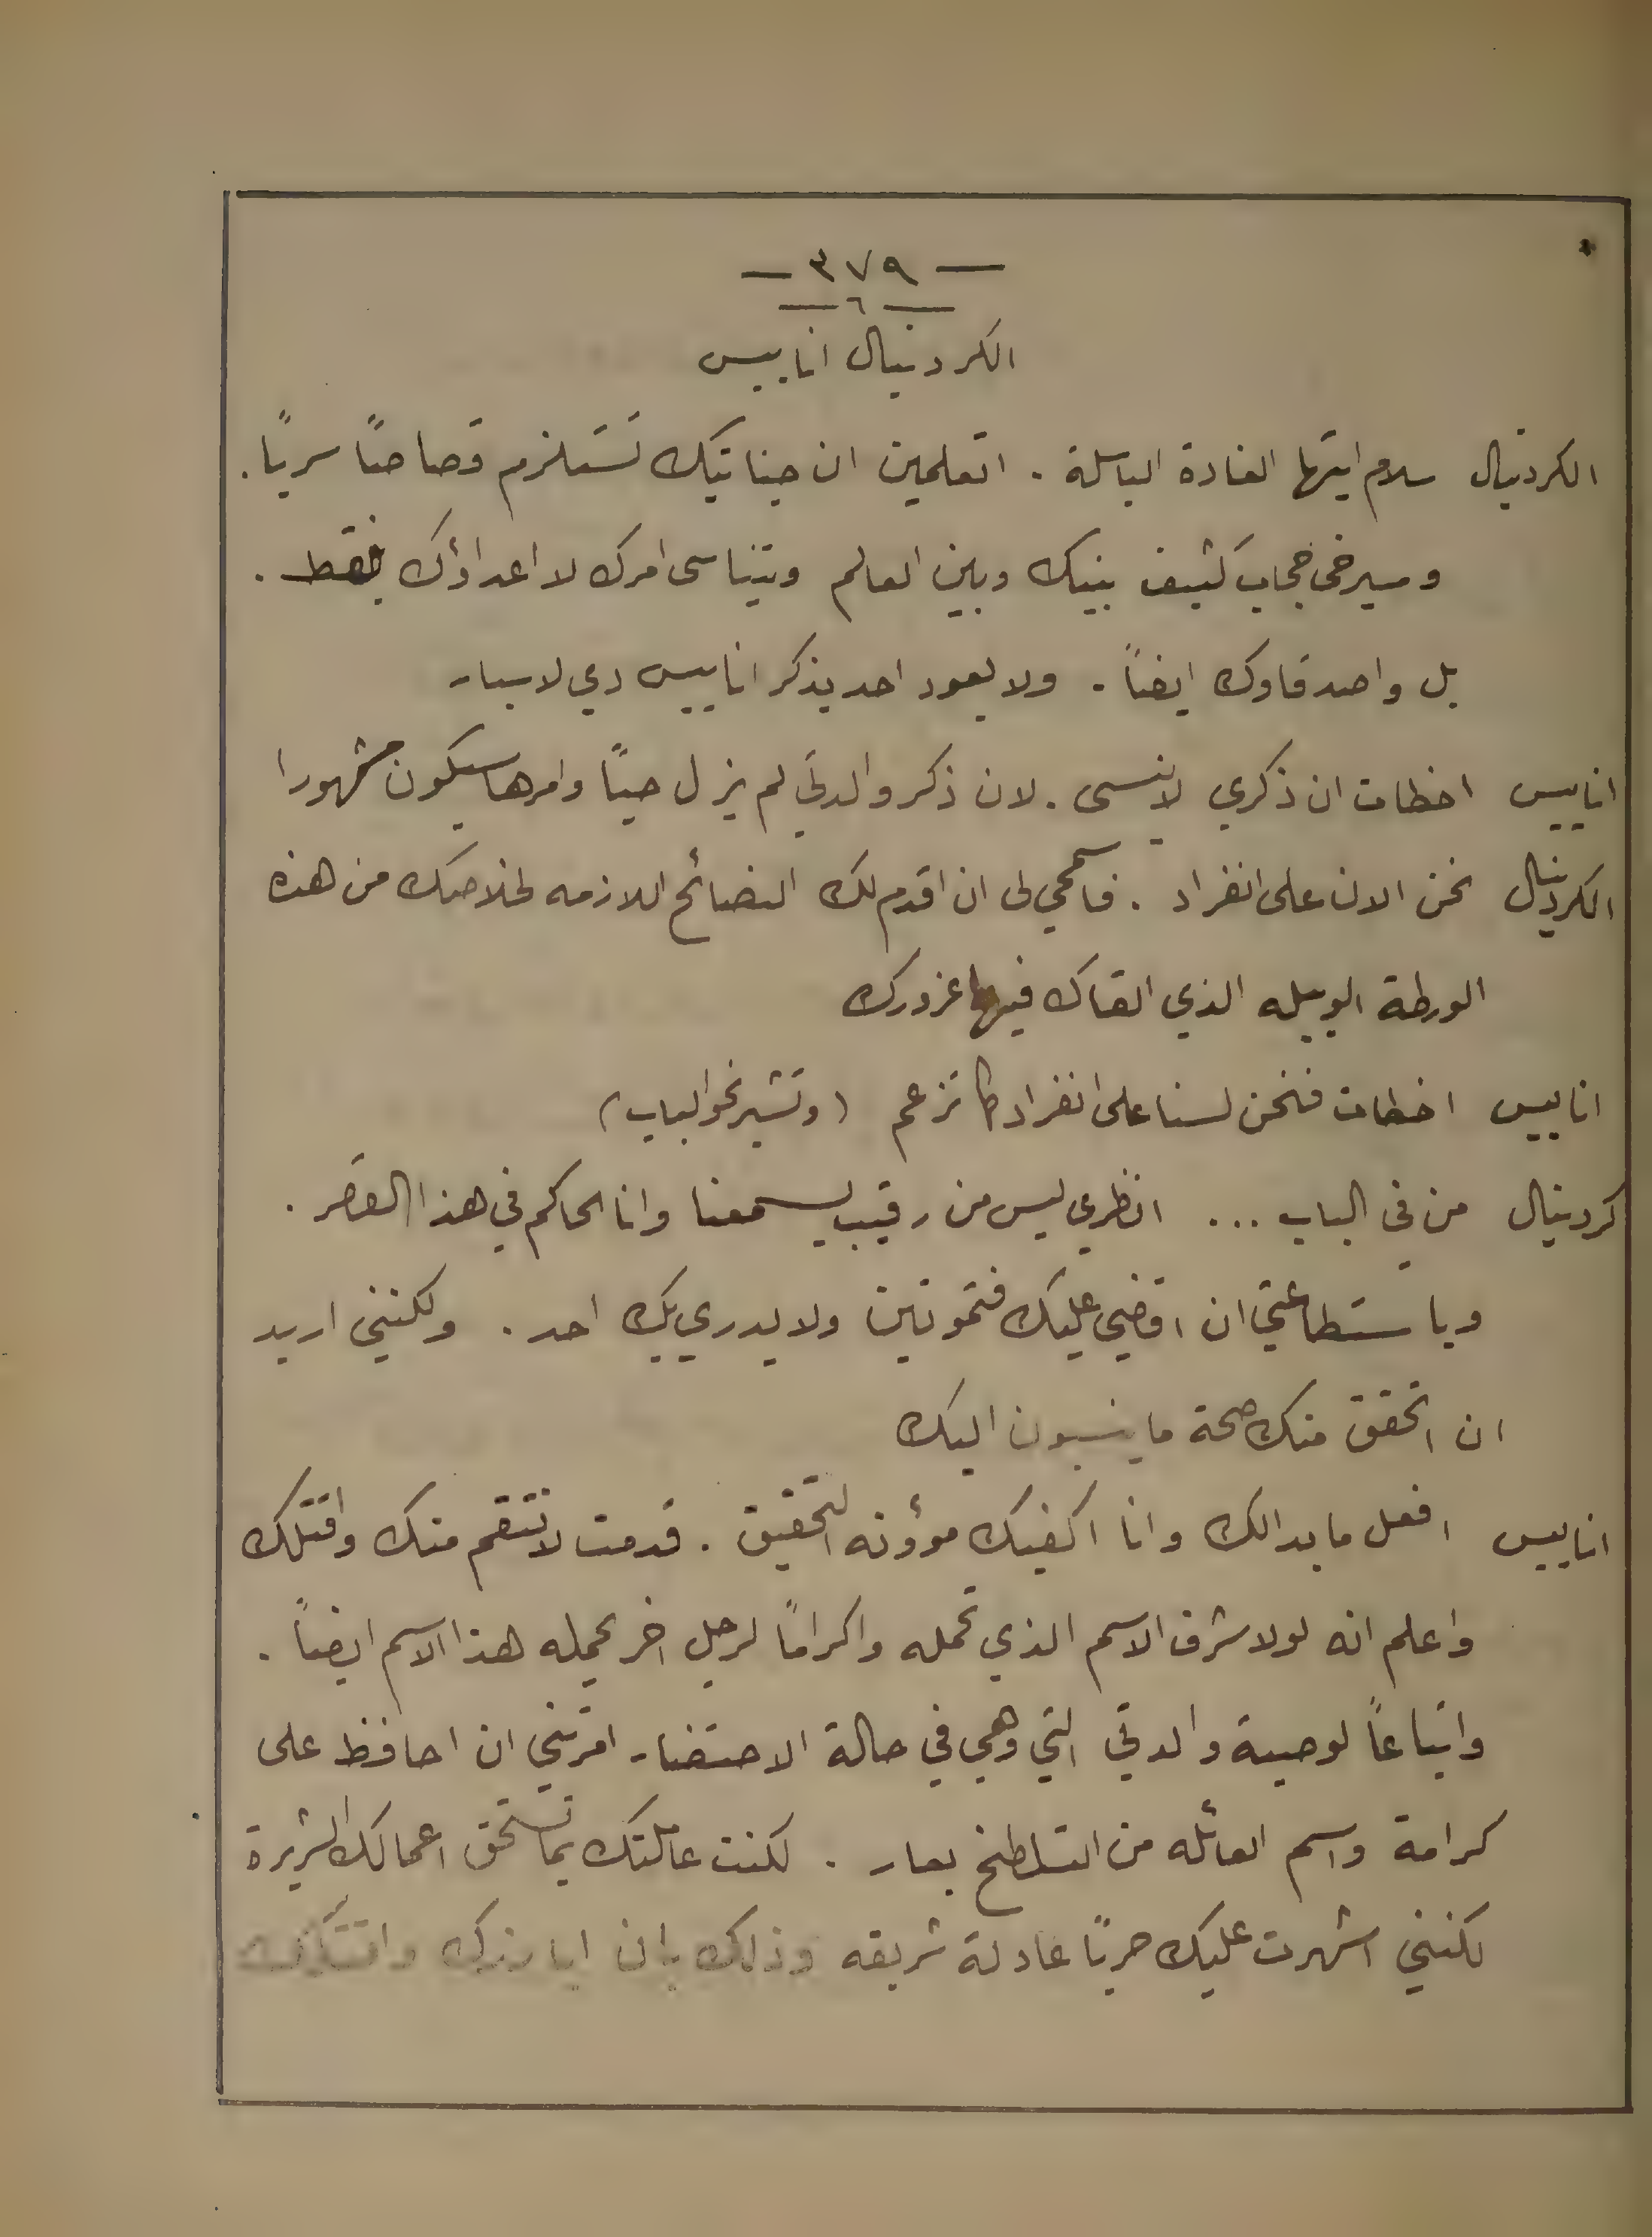 — ٣٧٩ —
— ٦ —
الكردينال انابيس
الكردينال سلام ايتها الغادة الباسلة . اتعلمين ان جنايتك تستلزم قصاصاً سرياً .
وسيرخى حجاب كثيف بينك وبين العالم ويتناسى امرك لا اعداؤك فقط .
بل واصدقاوك ايضاً . ولا يعود احد يذكر انابيس دي لاسبار
انابيس اخطات ان ذكري لا ينسى . لان ذكر والدتي لم يزل حياً وامرها سيكون مشهورا
الكردينال نحن الان على انفراد . فاسمحي لي ان اقدم لك النصائح اللازمه لخلاصك من هذه
الورطة الوبيله الذي القاك فيها غرورك
انابيس اخطات فنحن لسنا على انفراد كما تزعم (وتشير نحو الباب)
كردينال من في الباب ... انظري ليس من رقيب يسمعنا وانا الحاكم في هذا القصر .
وباستطاعتي ان اقضي عليك فتموتين ولا يدري بك احد . ولكنني اريد
ان اتحقق منك صحة ما ينسبون اليك
انابيس افعل ما بدالك وانا اكفيك مؤونه التحقيق . قدمت لانتقم منك واقتلك
واعلم انه لولا شرف الاسم الذي تحمله واكراماً لرجل اخر يحمله هذا الاسم ايضاً .
واتباعاً لوصية والدتي التي وهي في حالة الاحتضار امرتني ان احافظ على
كرامة واسم العائله من التلطخ بعار . لكنت عاملتك بما تستحق اعمالك الشريرة
لكنني اشهرت عليك حرباً عادلة شريفه وذلك بان ابارزك